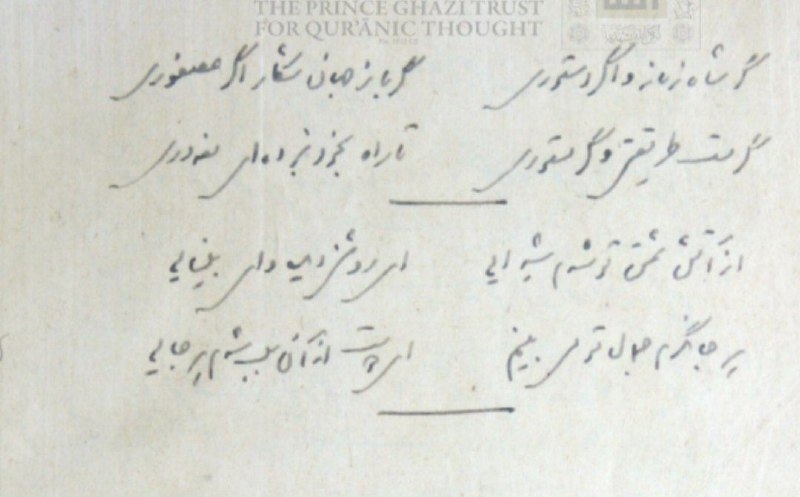 THE PRINCE GHAZI TRUST
FOR QUR'ĀNIC THOUGHT
گر شاه زمانه و اگر دستوری گر باز جهان شکار اگر عصفوری
گر مست طریقتی و گر مستوری تا راه بخود نبرده‌ای مغروری
از آتش عشق تو شدم شیدایی ای روشنی و ای بینایی
بر جا نگرم جمال تو می بینم ای دوست از آن سبب شدم هر جایی